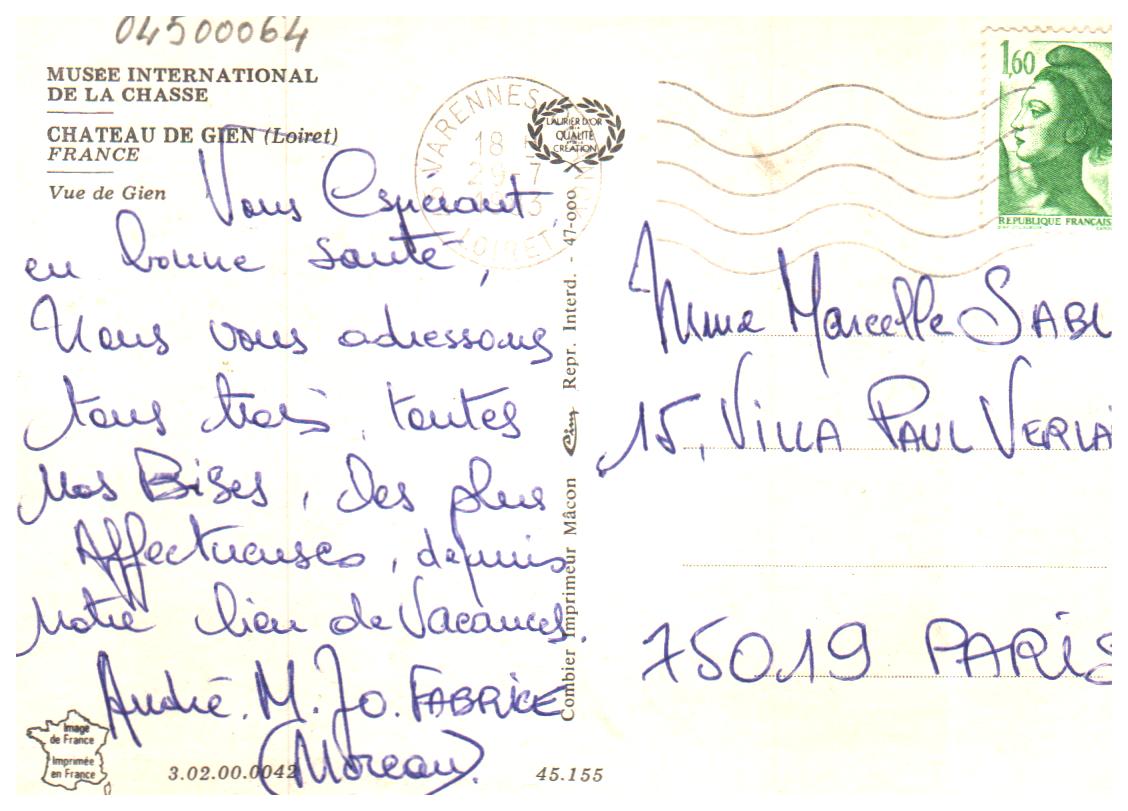 04500064
MUSÉE INTERNATIONAL
DE LA CHASSE
CHATEAU DE GIEN (Loiret)
FRANCE
Vue de Gien
Vous Espérant
en bonne santé,
Nous vous adressons
tous trois, toutes
Nos Bises, les plus
Affectueuses, depuis
Notre lieu de Vacances.
André. M. Jo. FABRICE
(Moreau).
Image
de France
Imprimée
en France
3.02.00.0042
45.155
Combier Imprimeur Mâcon Cim Repr. Interd. - 47-000
VARENNES
18
29-7
LOIRET
LAURIER D'OR
QUALITÉ
CRÉATION
1,60
REPUBLIQUE FRANÇAIS
Mme Marcelle SABL
15, VILLA PAUL VERLAI
75019 PARIS